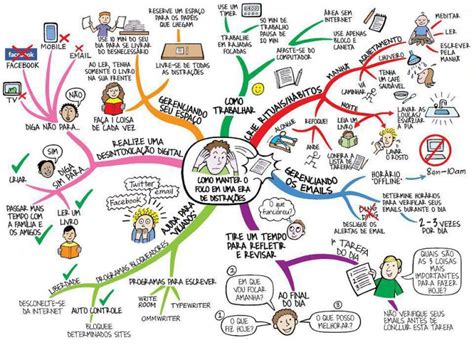 COMO MANTER O
FOCO EM UMA ERA
DE DISTRAÇÕES
COMO
TRABALHAR
USE UM
TIMER
TRABALHE
EM RAJADAS
FOCADAS
50 MIN DE
TRABALHO
PAUSA
DE 10 MIN
AFASTE-SE DO
COMPUTADOR
ÁREA SEM
INTERNET
USE APENAS
BLOCO E
CANETA
CRIE RITUAIS/HÁBITOS
MANHÃ
AQUIETAMENTO
CHUVEIRO
MEDITAR
LER
ESCREVER
PELA
MANHÃ
TENHA UM
CAFÉ
SAUDÁVEL
VÁ
CAMINHAR
NOITE
LAVAR AS
LOUÇAS/
ESVAZIAR A
PIA
LAVAR
O ROSTO
LEIA
UM
LIVRO
CONFIRA A
LISTA DE
REFOQUE!
ALONGUE
ANDE
GERENCIANDO
OS EMAILS
HORÁRIO
"OFFLINE"
8am-10am
DETERMINE HORÁRIOS
PARA VERIFICAR SEUS
EMAILS DURANTE O DIA
2-3 VEZES
POR DIA
DESLIGUE OS
ALERTAS DE EMAIL
TIRE UM TEMPO
PARA REFLETIR
E REVISAR
O que
funcionou?
1ª TAREFA
DO DIA
QUAIS SÃO
AS 3 COISAS
MAIS
IMPORTANTES
PARA FAZER
HOJE?
NÃO VERIFIQUE SEUS
EMAILS ANTES DE
CONCLUIR ESTA TAREFA
AO FINAL
DO DIA
EM QUE
VOU FOCAR
AMANHÃ?
O QUE
FIZ HOJE?
O QUE POSSO
MELHORAR?
AJUDA PARA
VICIADOS
Twitter
email
Facebook
PROGRAMAS PARA ESCREVER
WRITE
ROOM
TYPEWRITER
OMMWRITER
PROGRAMAS BLOQUEADORES
LIBERDADE
DESCONECTE-SE
DA INTERNET
AUTO CONTROLE
BLOQUEIE
DETERMINADOS SITES
REALIZE UMA
DESINTOXICAÇÃO DIGITAL
DIGA NÃO PARA...
NÃO
facebook
FACEBOOK
MOBILE
EMAIL
TV
DIGA
SIM PARA...
SIM
CRIAR
LER UM
LIVRO
PASSAR MAIS
TEMPO COM
A FAMÍLIA E
OS AMIGOS
GERENCIANDO
SEU ESPAÇO
RESERVE UM ESPAÇO
PARA OS PAPÉIS
QUE CHEGAM
USE 10 MIN DO SEU
DIA PARA SE LIVRAR
DO DESNECESSÁRIO
LIVRE-SE DE TODAS
AS DISTRAÇÕES
AO LER, TENHA
SOMENTE O LIVRO
NA SUA FRENTE
FAÇA 1 COISA
DE CADA VEZ